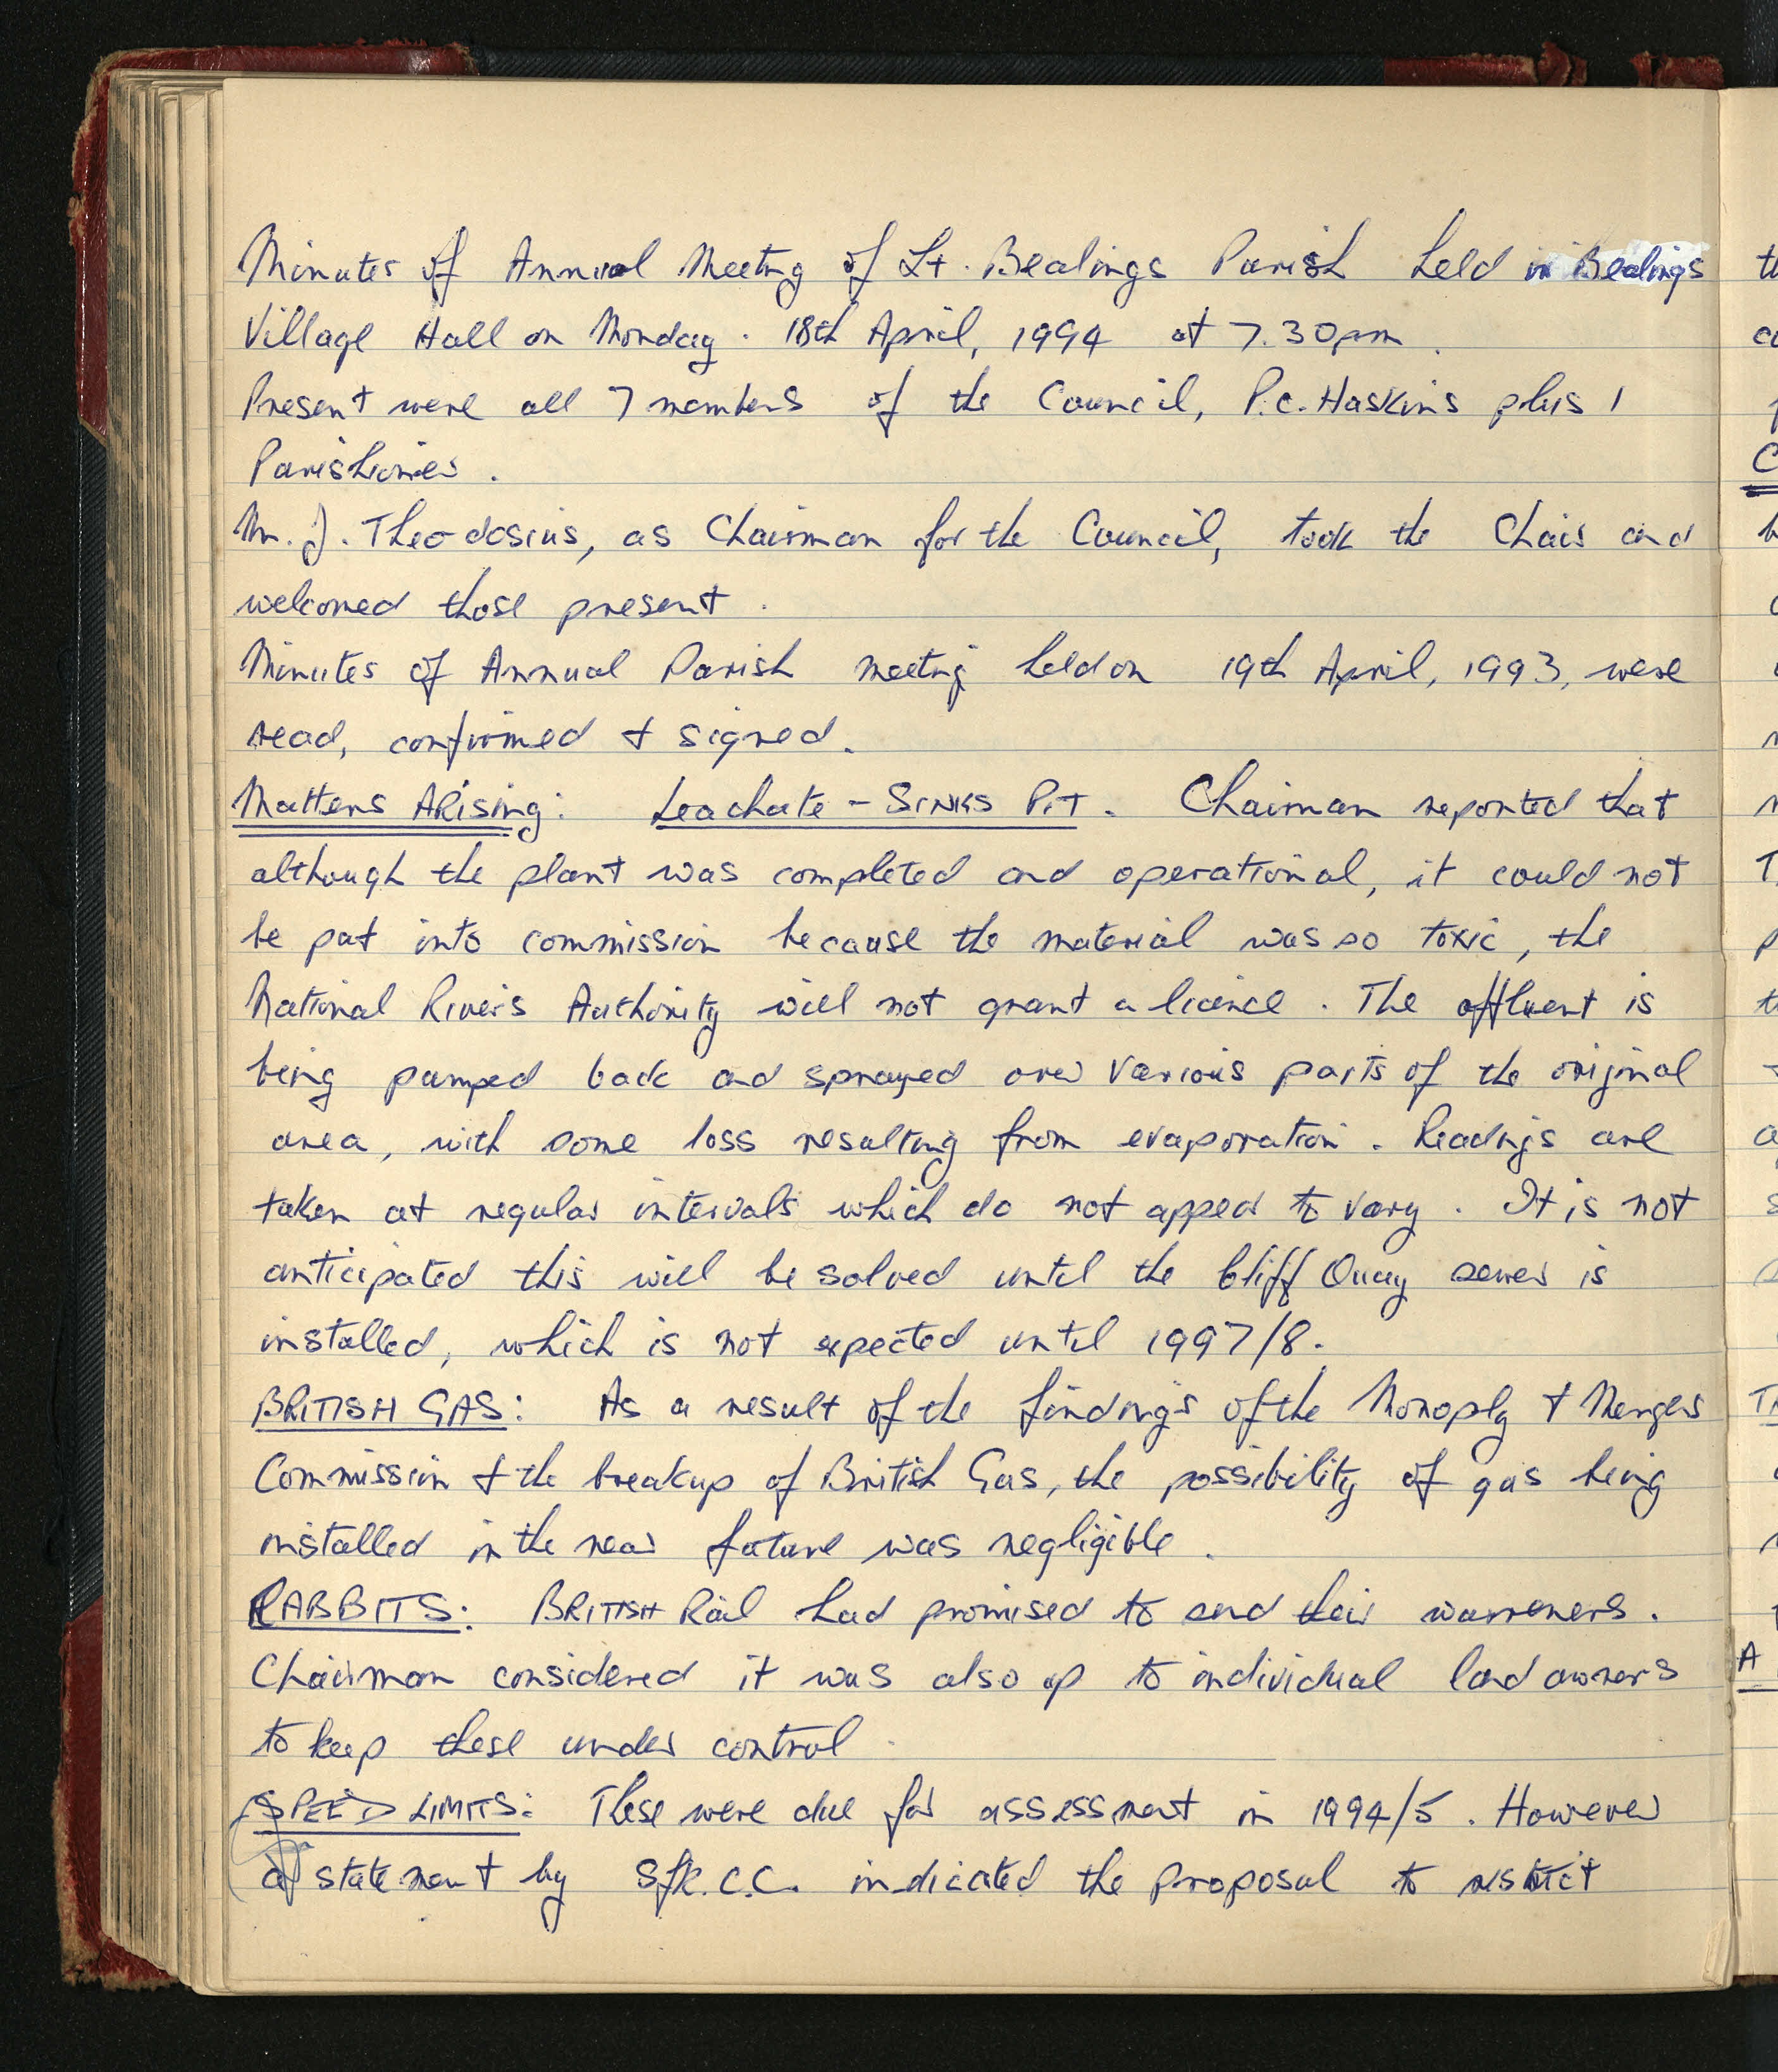 Minutes of Annual Meeting of Lt. Bealings Parish held in Bealings
Village Hall on Monday. 18th April, 1994 at 7.30pm.
Present were all 7 members of the Council, P.C. Haskins plus 1
Parishioner.
Mr. J. Theodosius, as Chairman for the Council, took the Chair and
welcomed those present.
Minutes of Annual Parish meeting held on 19th April, 1993, were
read, confirmed & signed.
Matters Arising: Leachate - Sinks Pit. Chairman reported that
although the plant was completed and operational, it could not
be put into commission because the material was so toxic, the
National Rivers Authority will not grant a licence. The effluent is
being pumped back and sprayed over various parts of the original
area, with some loss resulting from evaporation. Readings are
taken at regular intervals which do not appear to vary. It is not
anticipated this will be solved until the Cliff Quay sewer is
installed, which is not expected until 1997/8.
BRITISH GAS: As a result of the findings of the Monoply & Mergers
Commission & the breakup of British Gas, the possibility of gas being
installed in the near future was negligible.
RABBITS: BRITISH Rail had promised to send their warreners.
Chairman considered it was also up to individual land owners
to keep these under control.
SPEED LIMITS: These were due for assessment in 1994/5. However
a statement by Sfk.C.C. indicated the proposal to restrict